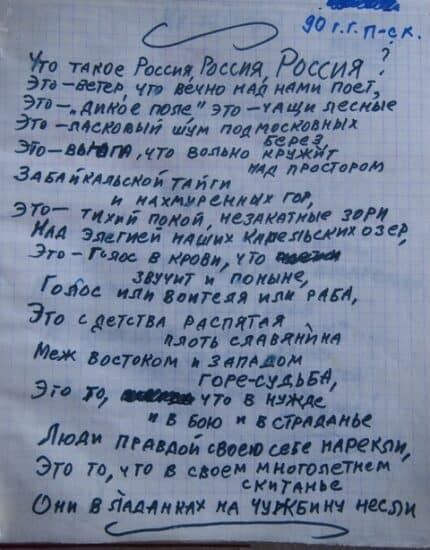 90 г.г. П-ск.
Что такое Россия, Россия, Россия?
Это-ветер, что вечно над нами поет,
Это-„дикое поле" это-чащи лесные
Это-ласковый шум подмосковных
берез
Это-вьюга, что вольно кружит
над простором
Забайкальской тайги
и нахмуренных гор,
Это-тихий покой, незакатные зори
Над элегией наших карельских озер,
Это-Голос в крови, что
звучит и поныне,
Голос или воителя или раба,
Это с детства распятая
плоть славянина
Меж востоком и западом
горе-судьба,
Это то, что в нужде
и в бою и в страданье
Люди правдой своею себе нарекли,
Это то, что в своем многолетнем
скитанье
Они в ладанках на чужбину несли